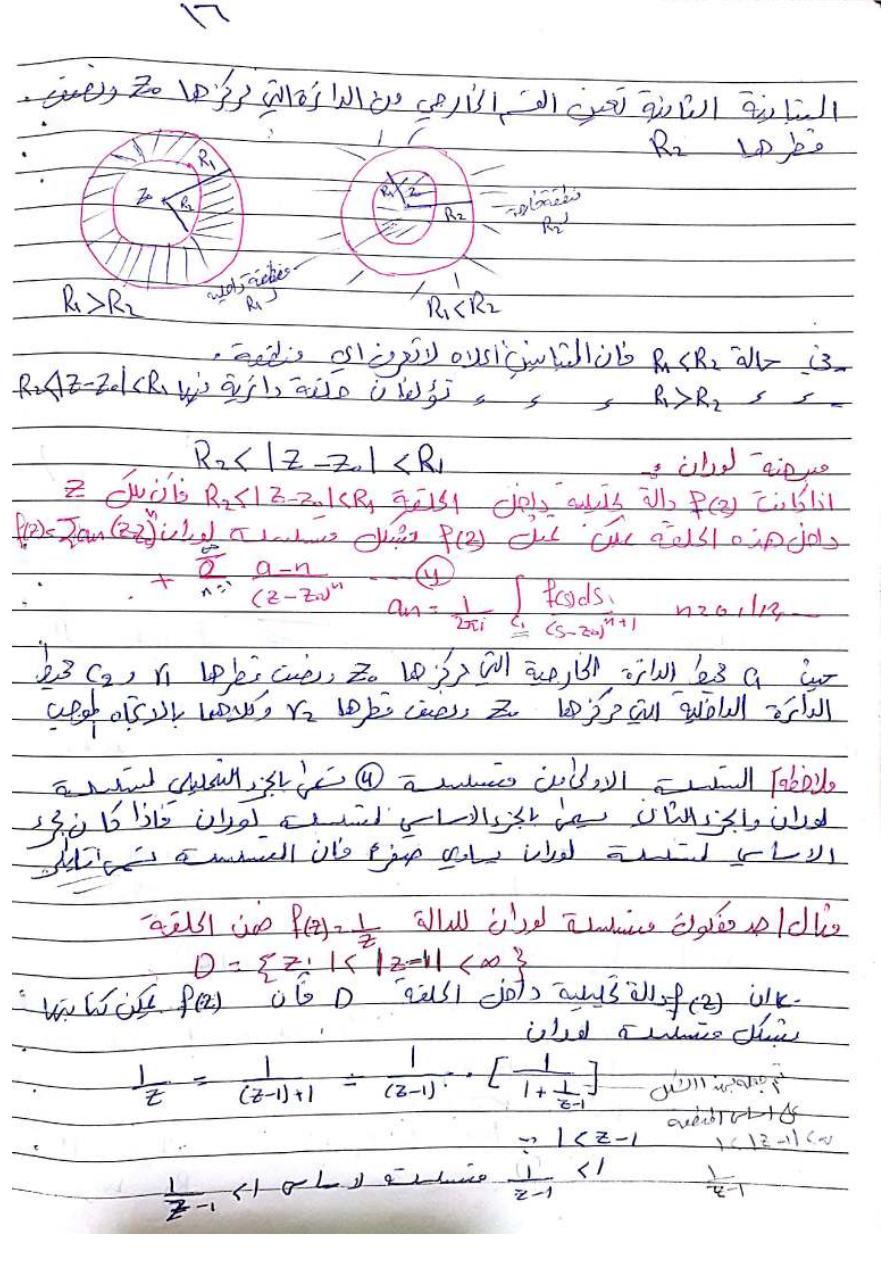 ١٦
المتباينة الثانية تعين القسم الخارجي من الدائرة التي مركزها Z₀ ونصف
قطرها R₂
R₁
Z₀
R₂
R₁ Z₀
R₂
منطقة خارجية
لـ R₂
منطقة داخلية
لـ R₁
R₁>R₂
R₁<R₂
في حالة R₁<R₂ فان المتباينتين اعلاه لا تعرف اي منطقة.
= = R₁>R₂ = = تؤلفان حلقة دائرية فيها R₂<|Z-Z₀|<R₁
R₂<|Z-Z₀|<R₁
مبرهنة لوران :-
اذا كانت f(z) دالة تحليلية داخل الحلقة R₂<|Z-Z₀|<R₁ فأن لكل Z
داخل هذه الحلقة يمكن تمثيل f(z) بشكل متسلسلة لوران f(z)=∑an(z-z₀)ⁿ
+ ∑_{n=1}^{∞} a-n/(z-z₀)ⁿ --- (4)
an = 1/2πi ∫_{C₁} f(s)ds/(s-z₀)ⁿ⁺¹ n=0,1,2,---
حيث C₁ محيط الدائرة الخارجية التي مركزها Z₀ ونصف قطرها r₁ و C₂ محيط
الدائرة الداخلية التي مركزها Z₀ ونصف قطرها r₂ وكلاهما بالاتجاه الموجب
ملاحظه| المتسلسلة الاولى من متسلسلة (4) تسمى بالجزء التحليلي لمتسلسلة
لوران والجزء الثاني يسمى بالجزء الاساسي لمتسلسلة لوران فاذا كان جزء
الاساسي لمتسلسلة لوران يساوي صفر فان المتسلسلة تسمى تايلر
مثال| جد مفكوك متسلسلة لوران للدالة f(z)=1/z ضمن الحلقة
D = {z: 1<|z-1|<∞}
بما ان f(z) دالة تحليلية داخل الحلقة D فأن f(z) يمكن كتابتها
بشكل متسلسلة لوران
1/z = 1/((z-1)+1) = 1/(z-1) · [1/(1+1/(z-1))]
بهذا الشكل
على اساس المنطقة
1<|z-1|<∞
∵ 1<z-1
1/(z-1) <1 متسلسلة لاساس 1> 1/(z-1)
1/(z-1)